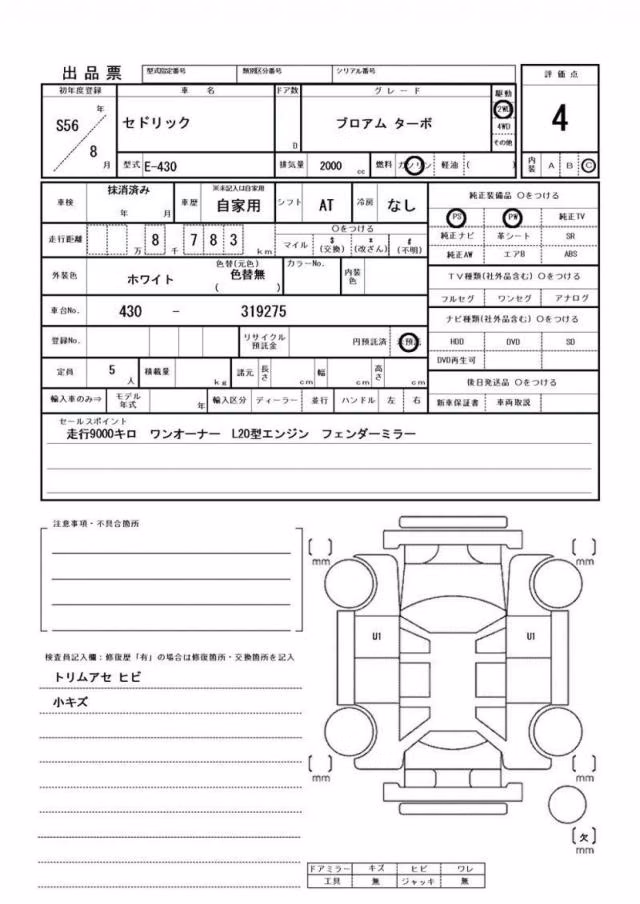 出品票 型式指定番号 類別区分番号 シリアル番号 評価点
初年度登録 車名 ドア数 グレード 駆動
S56 年 セドリック ブロアム ターボ 2WD 4
8 月 D 4WD
その他
型式 E-430 排気量 2000 cc 燃料 ガソリン 軽油 ( ) 内装 A B C
車検 抹消済み 年 月 車歴 ※未記入は自家用 自家用 シフト AT 冷房 なし 純正装備品 〇をつける
PS PW 純正TV
走行距離 万 8 千 7 8 3 km 〇をつける マイル $ (交換) * (改ざん) # (不明) 純正ナビ 革シート SR
純正AW エアB ABS
外装色 ホワイト 色替(元色) 色替無 ( ) カラーNo. 内装色 TV種類(社外品含む) 〇をつける
フルセグ ワンセグ アナログ
車台No. 430 - 319275 ナビ種類(社外品含む) 〇をつける
登録No. リサイクル預託金 円預託済 未預託 HDD DVD SD
DVD再生可
定員 5 人 積載量 kg 諸元 長さ cm 幅 cm 高さ cm 後日発送品 〇をつける
輸入車のみ⇒ モデル年式 年 輸入区分 ディーラー 並行 ハンドル 左 右 新車保証書 車両取説
セールスポイント
走行9000キロ ワンオーナー L20型エンジン フェンダーミラー
注意事項・不具合箇所
[ ] mm [ ] mm
U1 U1
検査員記入欄:修復歴「有」の場合は修復箇所・交換箇所を記入
トリムアセ ヒビ
小キズ
[ ] mm [ ] mm
[欠] mm
ドアミラー キズ ヒビ ワレ
工具 無 ジャッキ 無